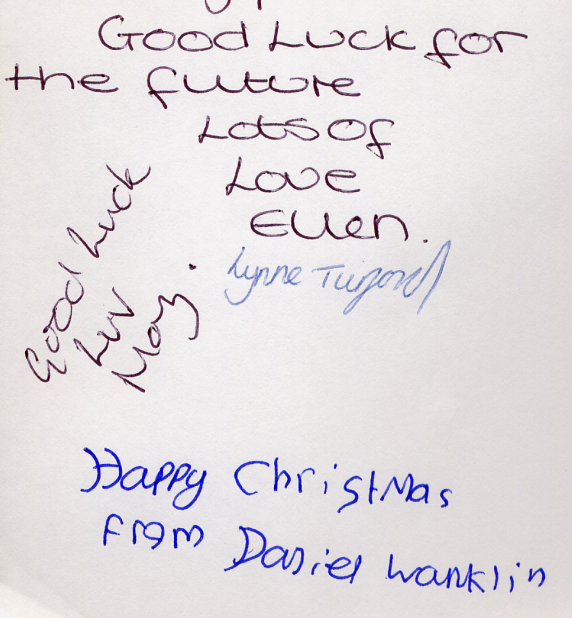 Good Luck for
the future
Lots of
Love
Ellen.
Good Luck
Luv
May.
Lynne
Happy Christmas
from Daniel Wanklin